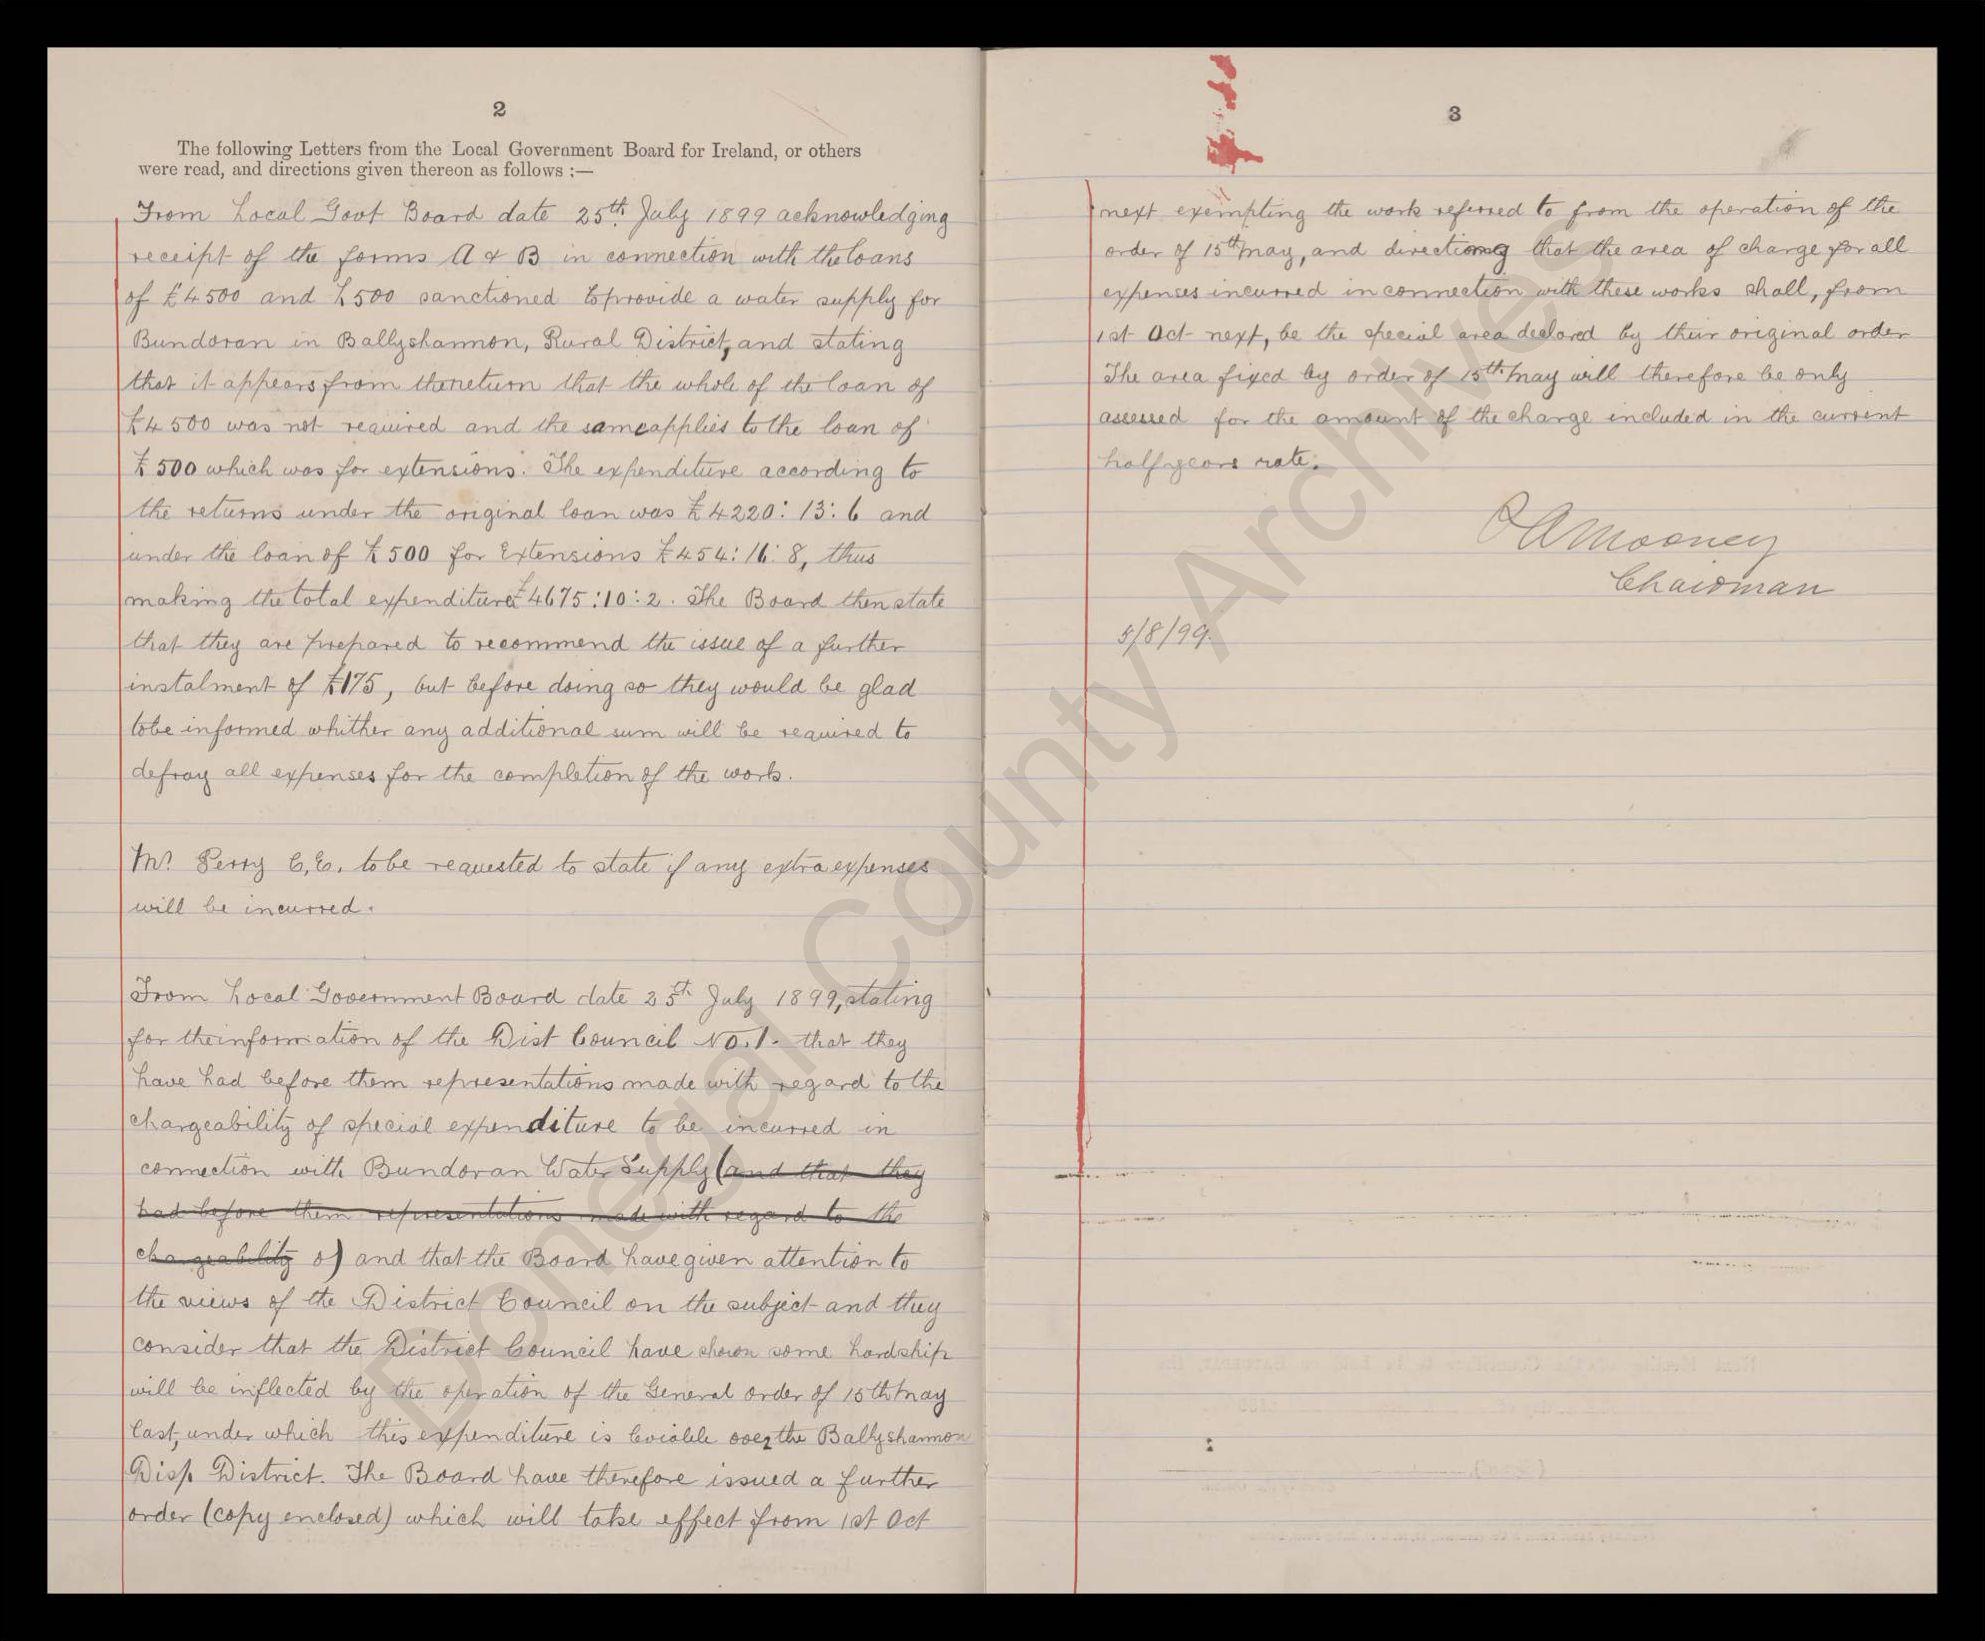 2
The following Letters from the Local Government Board for Ireland, or others
were read, and directions given thereon as follows :—
From Local Govt Board date 25th July 1899 acknowledging
receipt of the forms A & B in connection with the loans
of £4500 and £500 sanctioned to provide a water supply for
Bundoran in Ballyshannon, Rural District, and stating
that it appears from the return that the whole of the loan of
£4500 was not required and the same applies to the loan of
£500 which was for extensions. The expenditure according to
the returns under the original loan was £4220:13:6 and
under the loan of £500 for Extensions £454:16:8, thus
making the total expenditure £4675:10:2. The Board then state
that they are prepared to recommend the issue of a further
instalment of £175, but before doing so they would be glad
to be informed whither any additional sum will be required to
defray all expenses for the completion of the work.
Mr. Perry C.E. to be requested to state if any extra expenses
will be incurred.
From Local Government Board date 25th July 1899, stating
for the information of the Dist Council No.1. that they
have had before them representations made with regard to the
chargeability of special expenditure to be incurred in
connection with Bundoran Water Supply (and that they
had before them representations made with regard to the
chargeability of) and that the Board have given attention to
the views of the District Council on the subject and they
consider that the District Council have shown some hardship
will be inflected by the operation of the General order of 15th May
last, under which this expenditure is leviable over the Ballyshannon
Disp. District. The Board have therefore issued a further
order (copy enclosed) which will take effect from 1st Oct
3
next exempting the work referred to from the operation of the
order of 15th May, and directiong that the area of charge for all
expenses incurred in connection with these works shall, from
1st Oct next, be the special area declared by their original order
The area fixed by order of 15th May will therefore be only
assessed for the amount of the charge included in the current
half years rate.
Mooney
Chairman
5/8/99.
Donegal County Archives